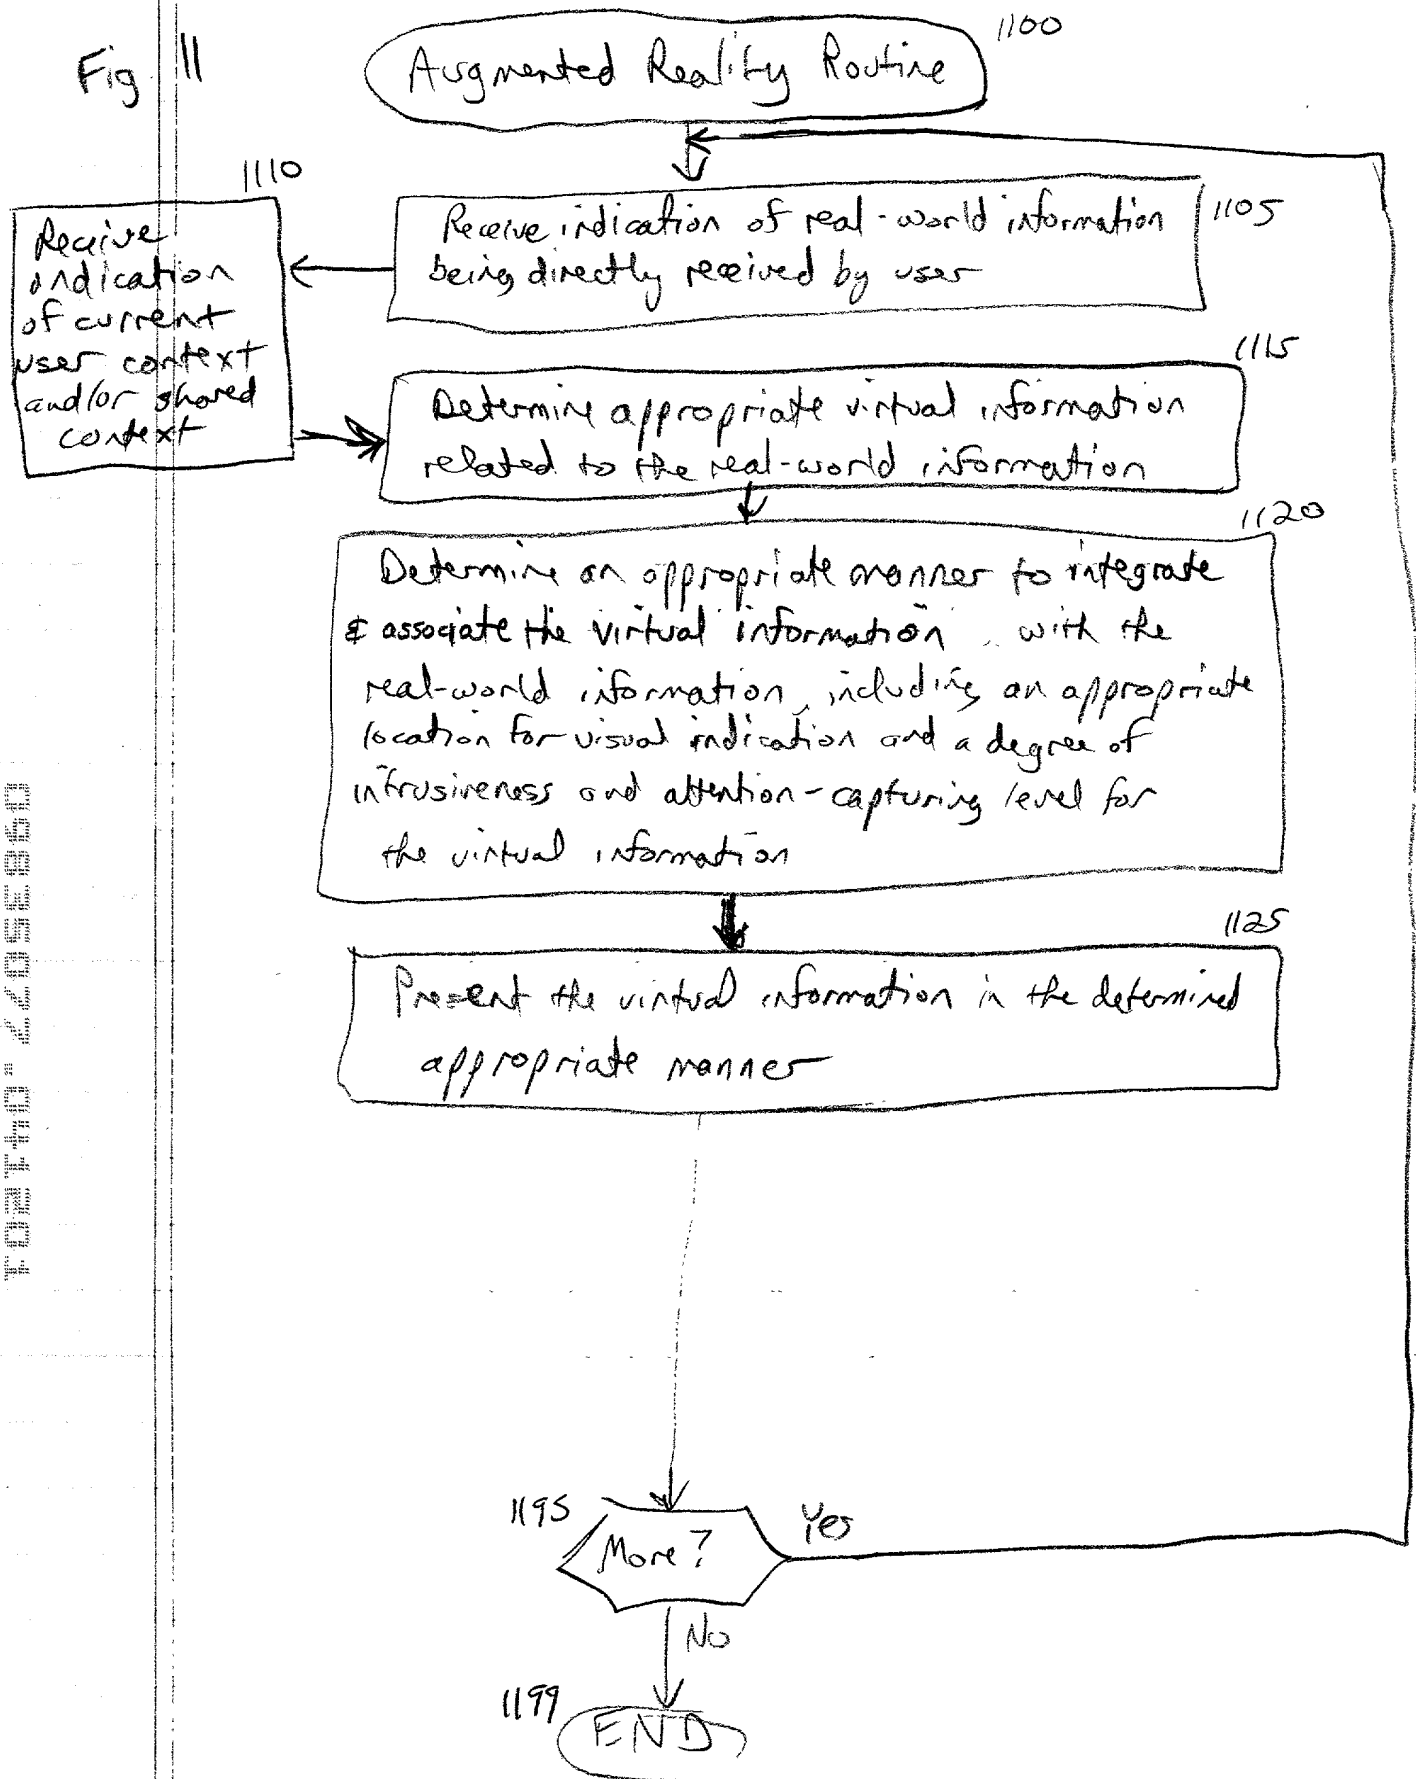 Fig 11
1100
Augmented Reality Routine
1105
Receive indication of real-world information
being directly received by user
1110
Receive
indication
of current
user context
and/or shared
context
1115
Determine appropriate virtual information
related to the real-world information
1120
Determine an appropriate manner to integrate
& associate the virtual information with the
real-world information, including an appropriate
location for visual indication and a degree of
intrusiveness and attention-capturing level for
the virtual information
1125
Present the virtual information in the determined
appropriate manner
1195
More?
Yes
No
1199
END